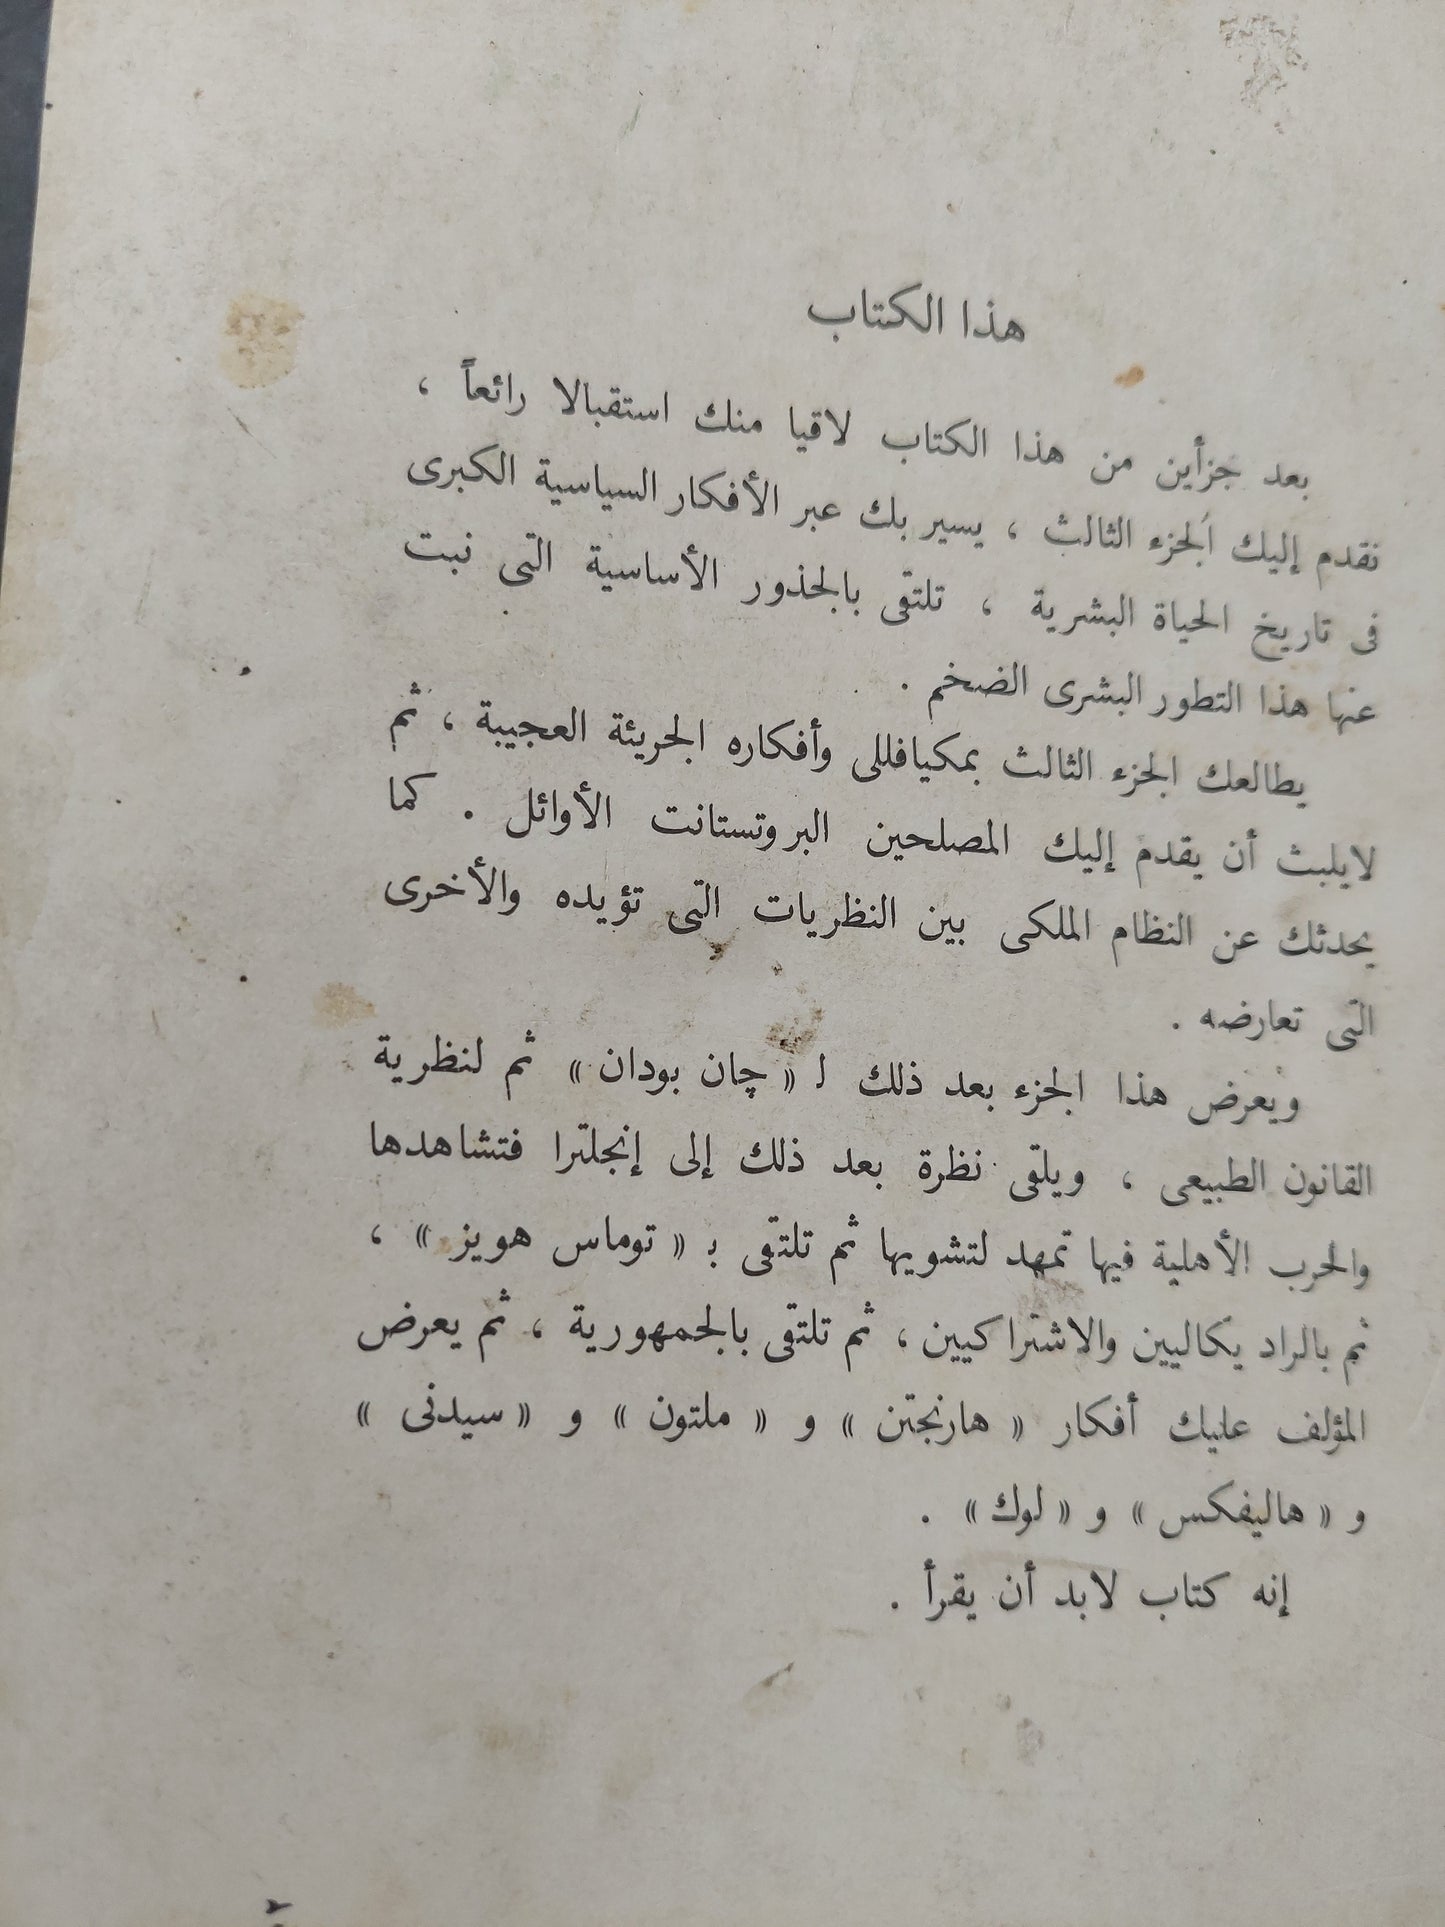 هذا الكتاب
بعد جزأين من هذا الكتاب لاقيا منك استقبالا رائعاً ،
نقدم إليك الجزء الثالث ، يسير بك عبر الأفكار السياسية الكبرى
فى تاريخ الحياة البشرية ، تلتقى بالجذور الأساسية التى نبت
عنها هذا التطور البشرى الضخم .
يطالعك الجزء الثالث بمكيافللى وأفكاره الجريئة العجيبة ، ثم
لايلبث أن يقدم إليك المصلحين البروتستانت الأوائل . كما
يحدثك عن النظام الملكى بين النظريات التى تؤيده والأخرى
التى تعارضه .
ويعرض هذا الجزء بعد ذلك لـ « چان بودان » ثم لنظرية
القانون الطبيعى ، ويلقى نظرة بعد ذلك إلى إنجلترا فتشاهدها
والحرب الأهلية فيها تمهد لتشويها ثم تلتقى بـ « توماس هوبز » ،
ثم بالراد يكاليين والاشتراكيين ، ثم تلتقى بالجمهورية ، ثم يعرض
المؤلف عليك أفكار « هارنجتن » و « ملتون » و « سيدنى »
و « هاليفكس » و « لوك » .
إنه كتاب لابد أن يقرأ .